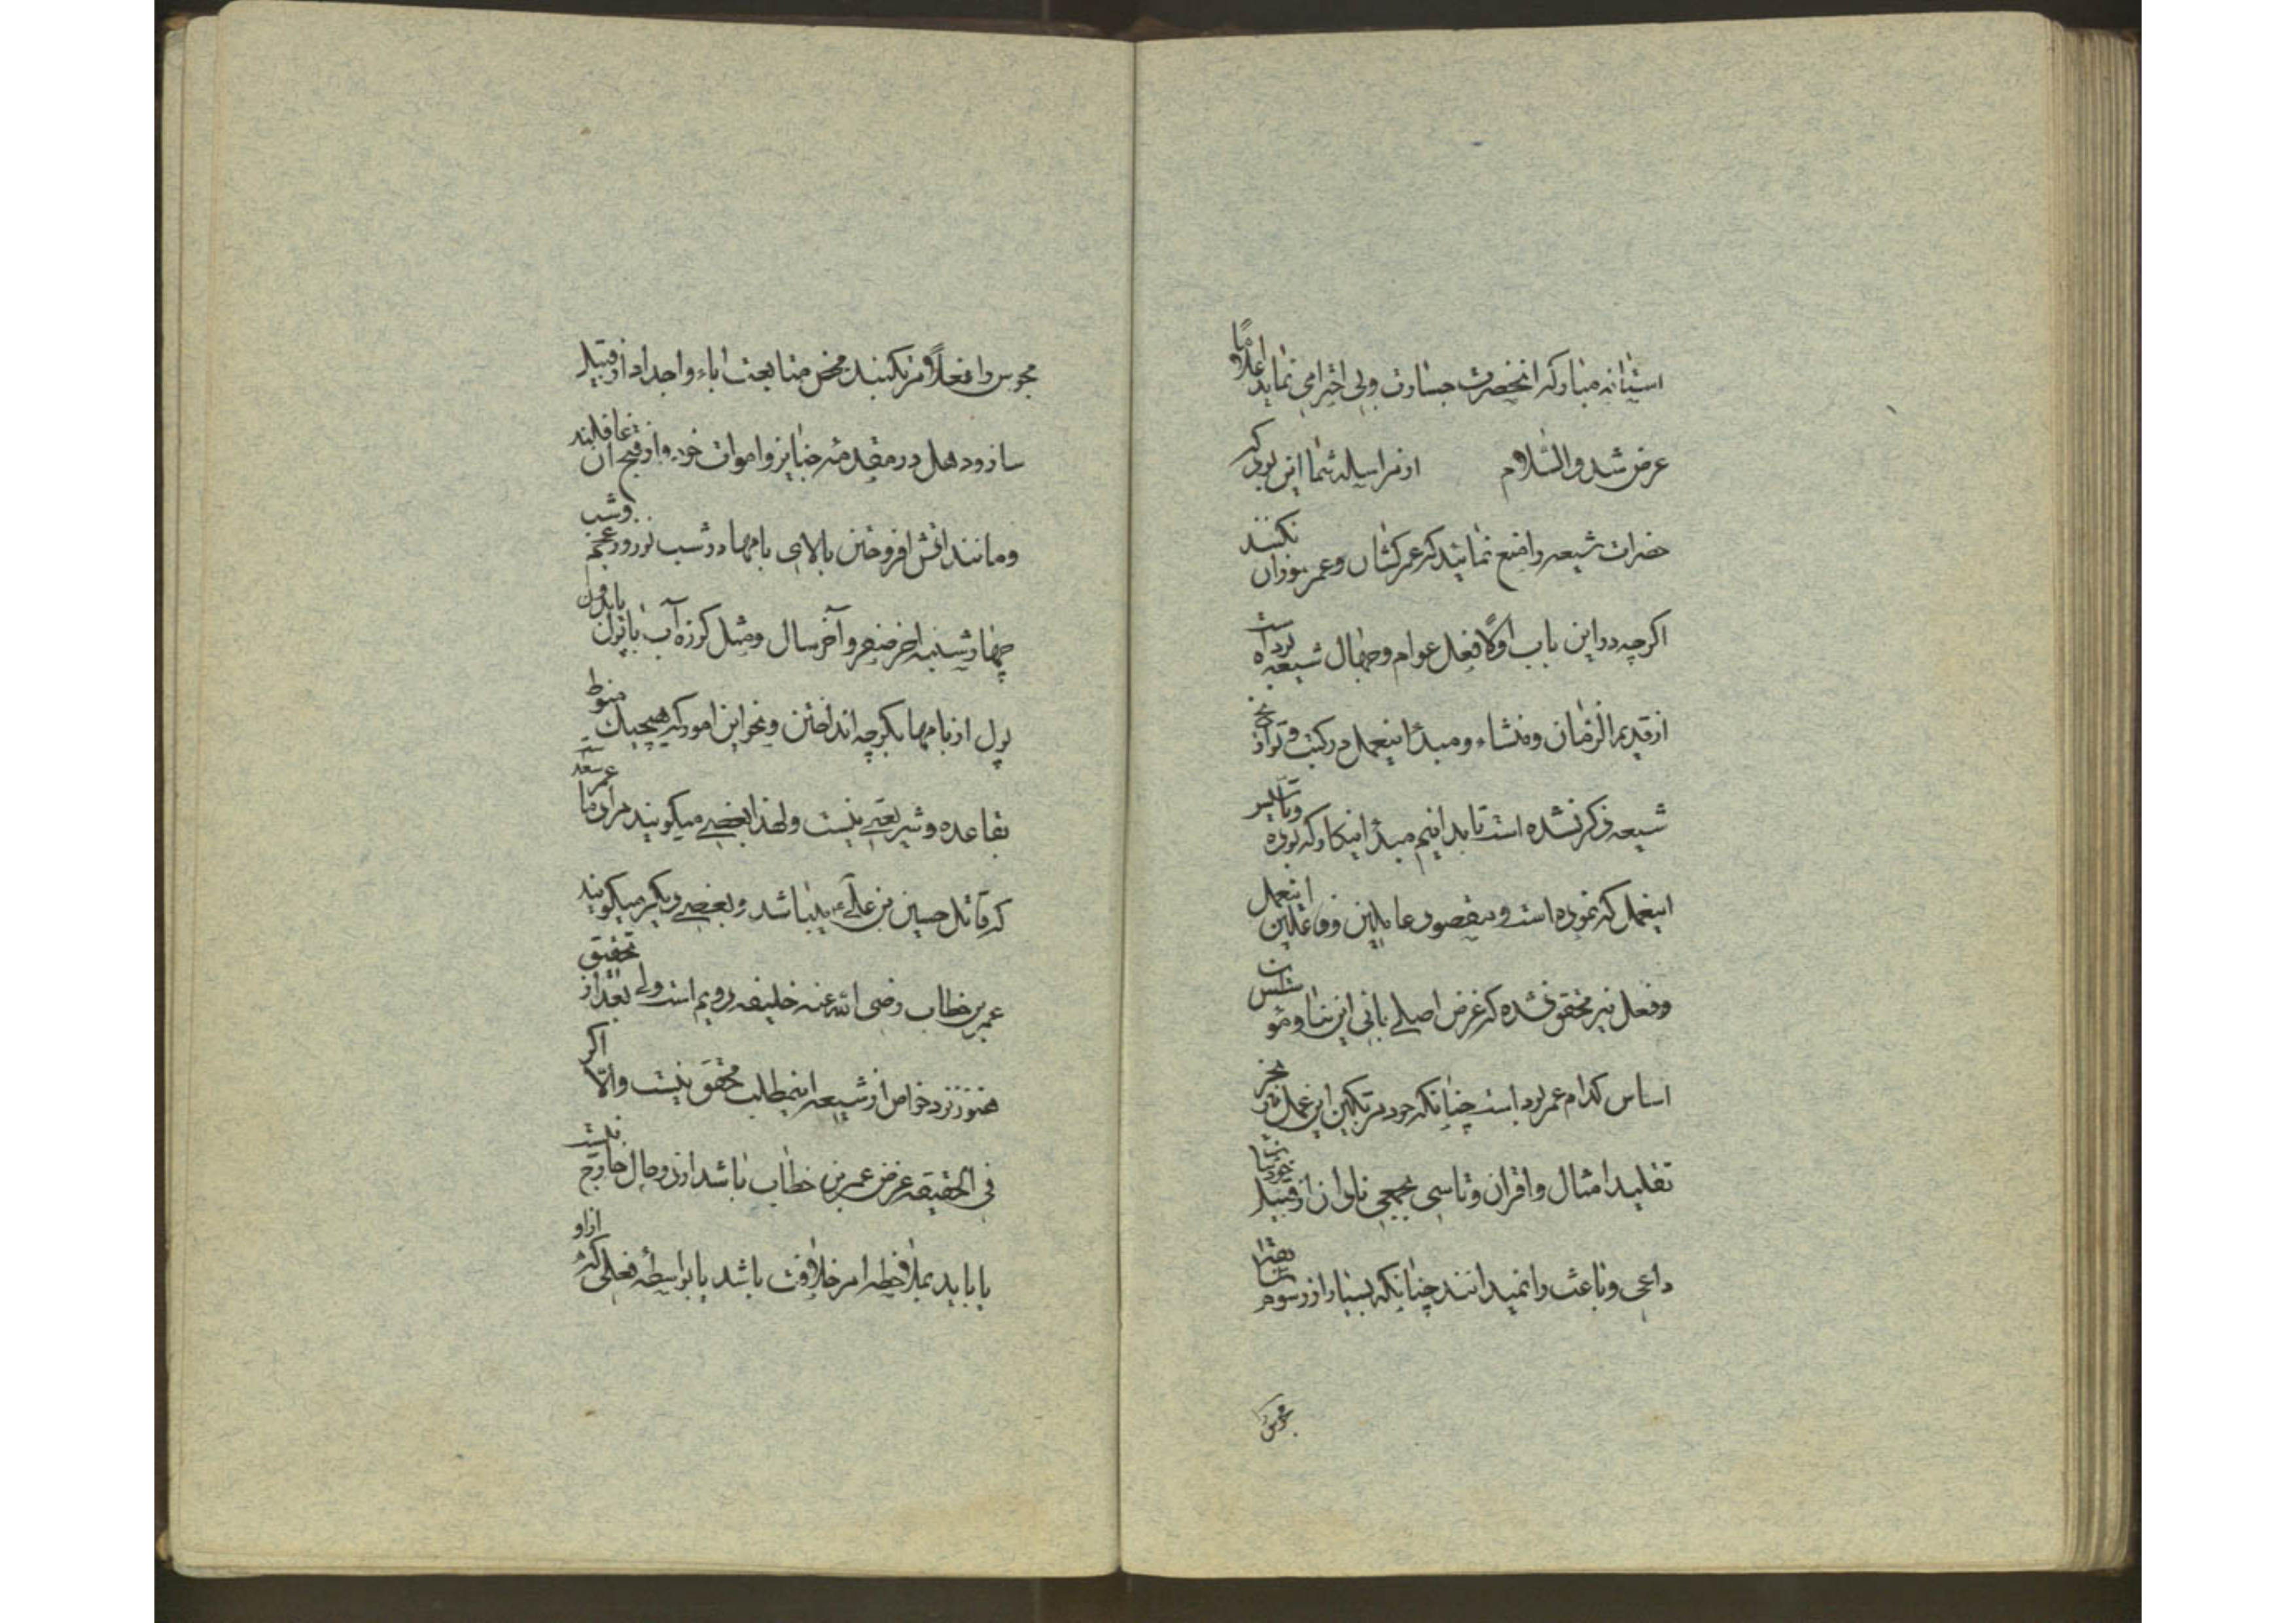 استانه مبارکه انحضرت جسارت وبی احترامی نماید اعلاماً
عرض شد والسلام ازمراسله شما این بود که
حضرات شیعه را منع نمائید که عمرکشان وعمرسوزان نکنند
اکرچه دراین باب اولا فعل عوام وجهال شیعه بوده است
ازقدیم الزمان ومنشاء ومبدأ اینعمل در کتب وتواریخ
شیعه ذکر نشده است تا بدانیم مبدأ اینکار که بوده وتاسیس
اینعمل که نموده است ومقصود عاملین وفاعلین اینعمل
وفعل نیز محقق نشده که غرض اصلی بانی این بنا وموسس
اساس کدام عمر بوده است چنانکه خود مرتکبین این عمل نیز بجز
تقلید امثال واقران وتاسی بجمعی نادان از قبیل خودشان
داعی وباعث را نمیدانند چنانکه بسیار از رسوم
مجوس
مجوس را فعلاً مرتکبند محض متابعت اباء واجداد ازقبیل
ساز ودهل درمقدمه جنایز واموات خود واز قبح ان غافلند
ومانند اتش افروختن بالای بامها در شب نوروز عجم وشب
چهارشنبه اخر صفر وآخر سال ومثل کوزه آب با پول یا بدون
پول از بامها بکوچه انداختن ونحو این امور که هیچیک منوط
بقاعده وشریعتی نیست ولهذا بعضی میکویند مراد ما عمر سعد
که قاتل حسین بن علی میباشد وبعضی دیکر میکویند
عمر بن خطاب رضی الله عنه خلیفه دویم است ولی بعد از تحقیق
هنوز نزد خواص از شیعه اینمطلب محقق نیست والا اکر
فی الحقیقه غرض عمر بن خطاب باشد ازدو حال خارج نیست
یا باید بملاحظه امر خلافت باشد یا بواسطه فعلی که از او